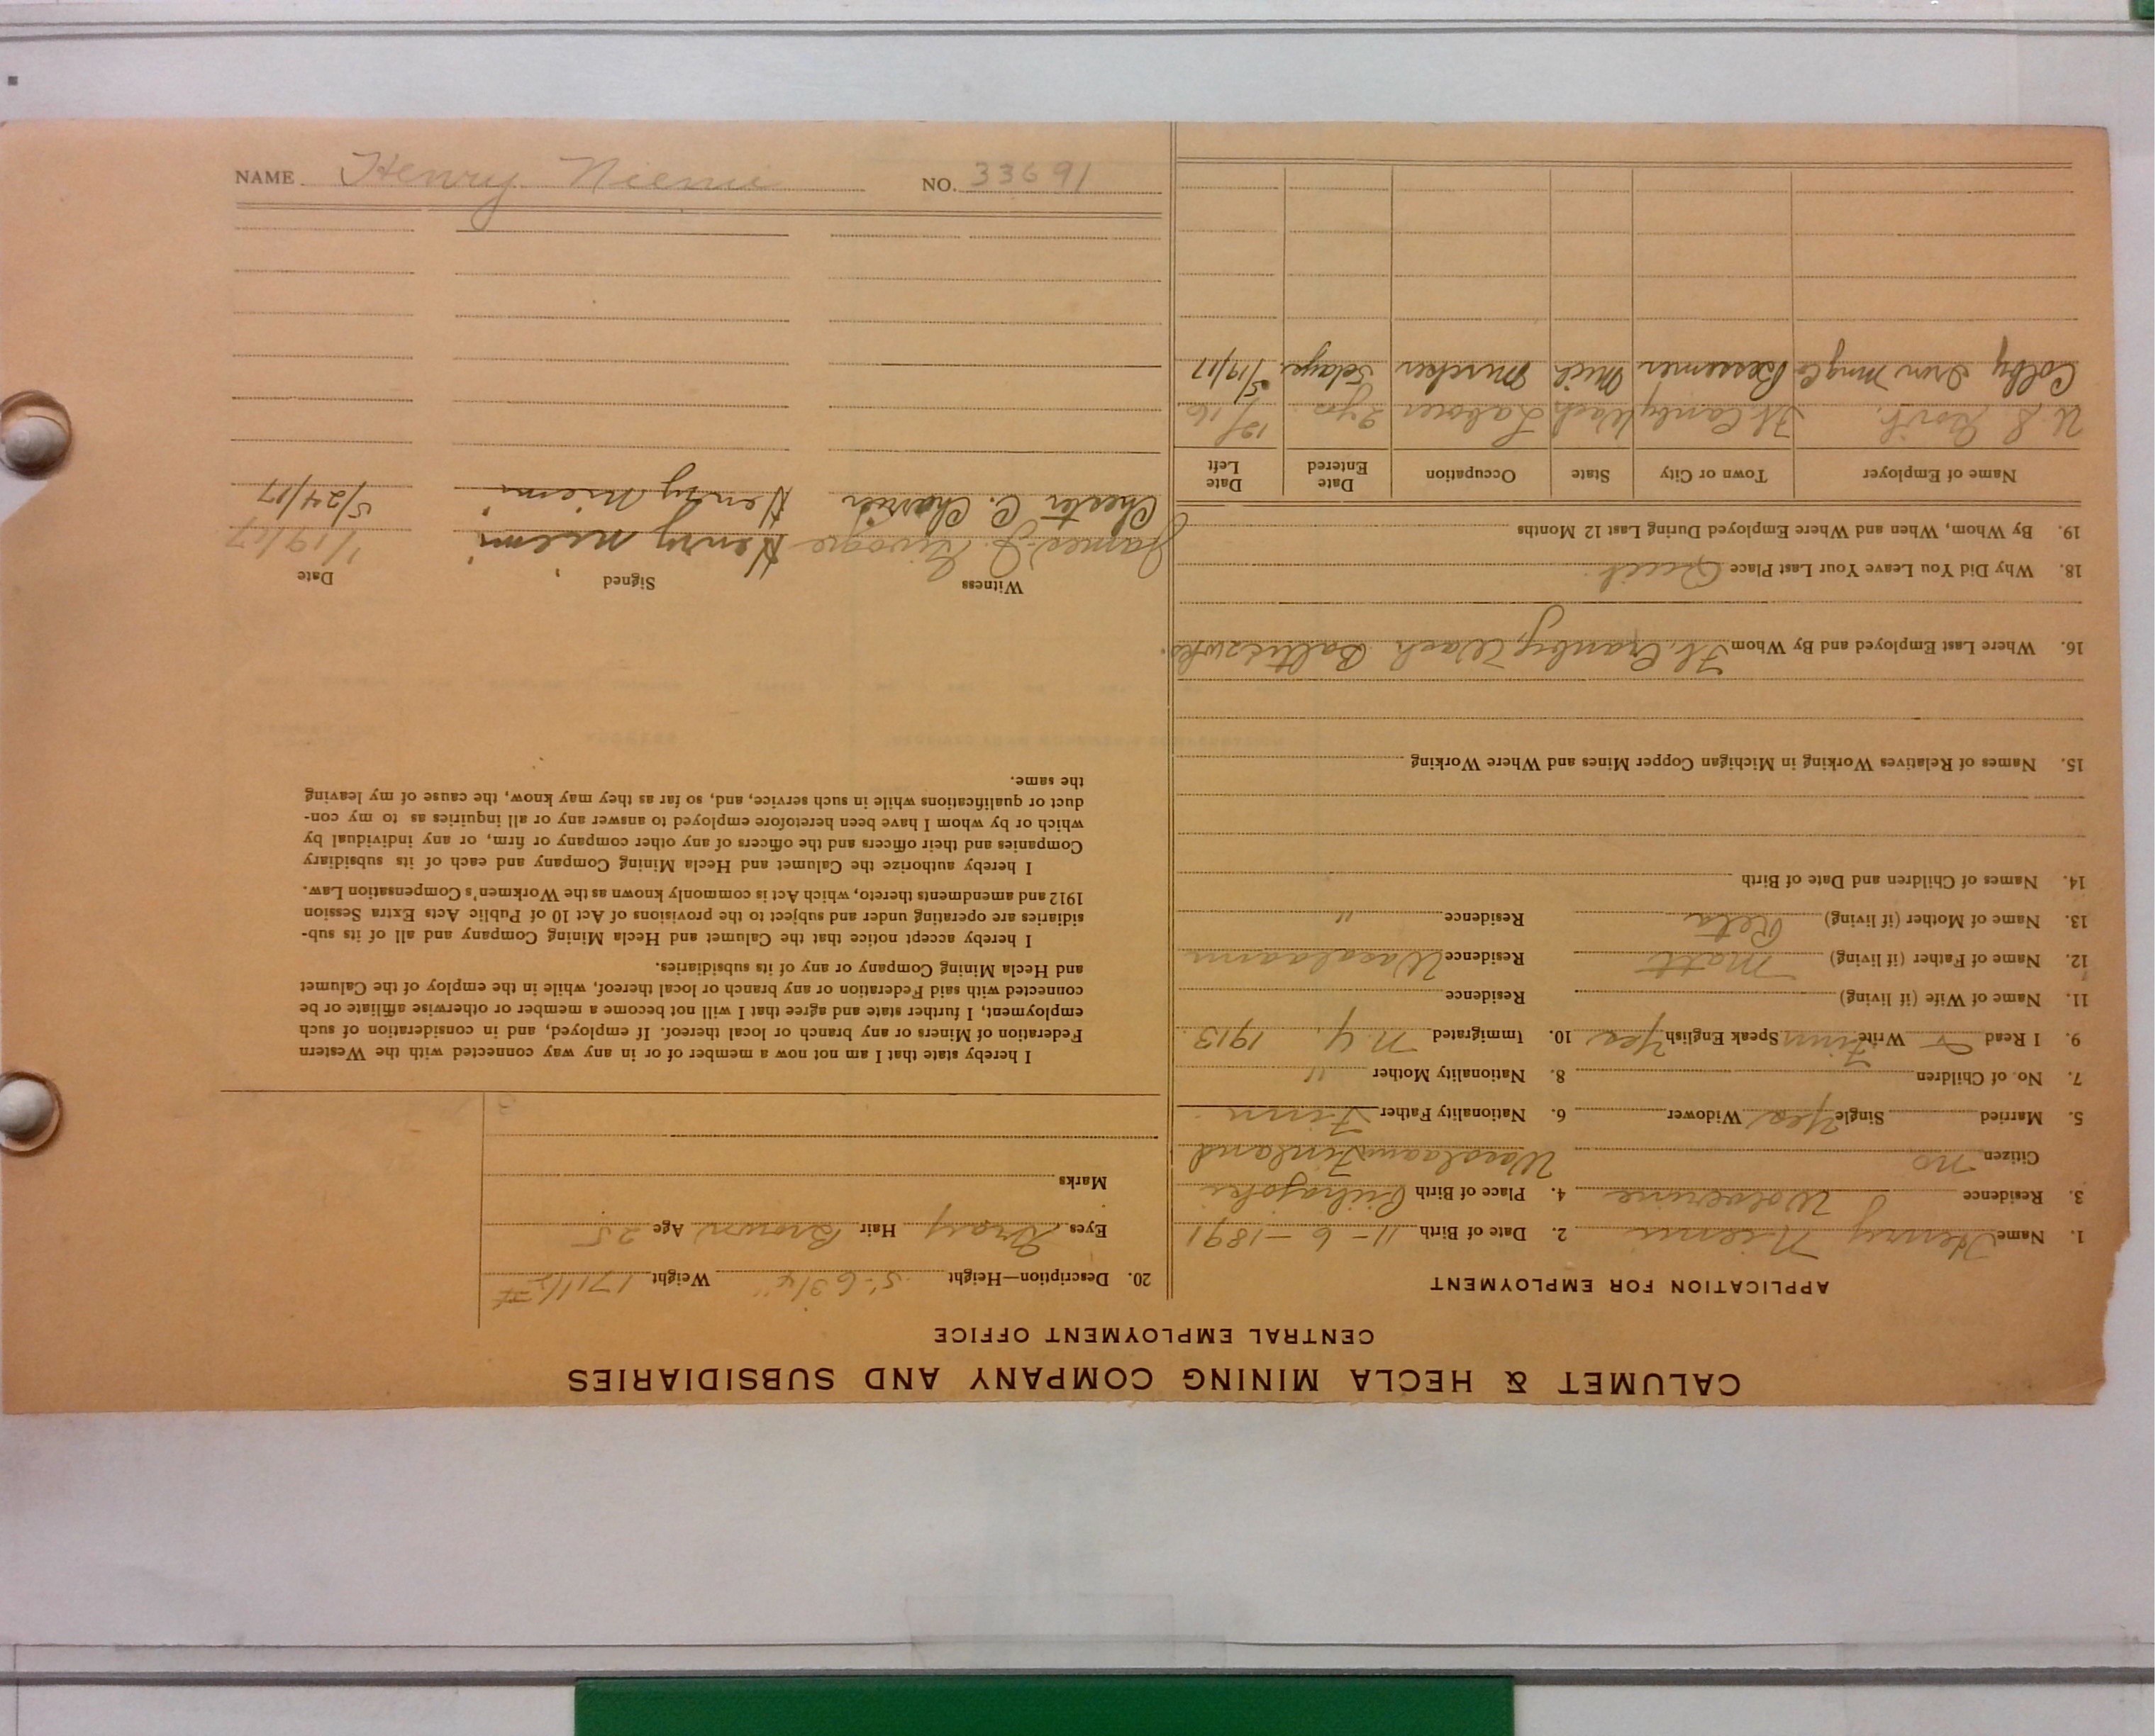 NAME Henry Niemi NO. 33691
CALUMET & HECLA MINING COMPANY AND SUBSIDIARIES
CENTRAL EMPLOYMENT OFFICE
APPLICATION FOR EMPLOYMENT
1. Name Henry Niemi 2. Date of Birth 11-6-1891
3. Residence Wolverine 4. Place of Birth
Citizen no Finland
5. Married Single Yes Widower 6. Nationality Father Finn
7. No. of Children 8. Nationality Mother "
9. I Read Write Finn Speak English Yes 10. Immigrated N.Y. 1913
11. Name of Wife (if living) Residence
12. Name of Father (if living) Matt Residence
13. Name of Mother (if living) Residence "
14. Names of Children and Date of Birth
15. Names of Relatives Working in Michigan Copper Mines and Where Working
16. Where Last Employed and By Whom Ft. Wash
18. Why Did You Leave Your Last Place Quit
19. By Whom, When and Where Employed During Last 12 Months
Name of Employer Town or City State Occupation Date Entered Date Left
U.S. Ft. Canby Wash Laborer 2 yrs
Colby Iron Bessemer Mich 5/19/17
20. Description—Height 5'-6 3/4" Weight 171 1/2 #
Eyes Gray Hair Brown Age 25
Marks
I hereby state that I am not now a member of or in any way connected with the Western
Federation of Miners or any branch or local thereof. If employed, and in consideration of such
employment, I further state and agree that I will not become a member or otherwise affiliate or be
connected with said Federation or any branch or local thereof, while in the employ of the Calumet
and Hecla Mining Company or any of its subsidiaries.
I hereby accept notice that the Calumet and Hecla Mining Company and all of its sub-
sidiaries are operating under and subject to the provisions of Act 10 of Public Acts Extra Session
1912 and amendments thereto, which Act is commonly known as the Workmen's Compensation Law.
I hereby authorize the Calumet and Hecla Mining Company and each of its subsidiary
Companies and their officers and the officers of any other company or firm, or any individual by
which or by whom I have been heretofore employed to answer any or all inquiries as to my con-
duct or qualifications while in such service, and, so far as they may know, the cause of my leaving
the same.
Witness Signed Date
James Henry Niemi 1/19/17
Chester C. Henry Niemi 5/24/17